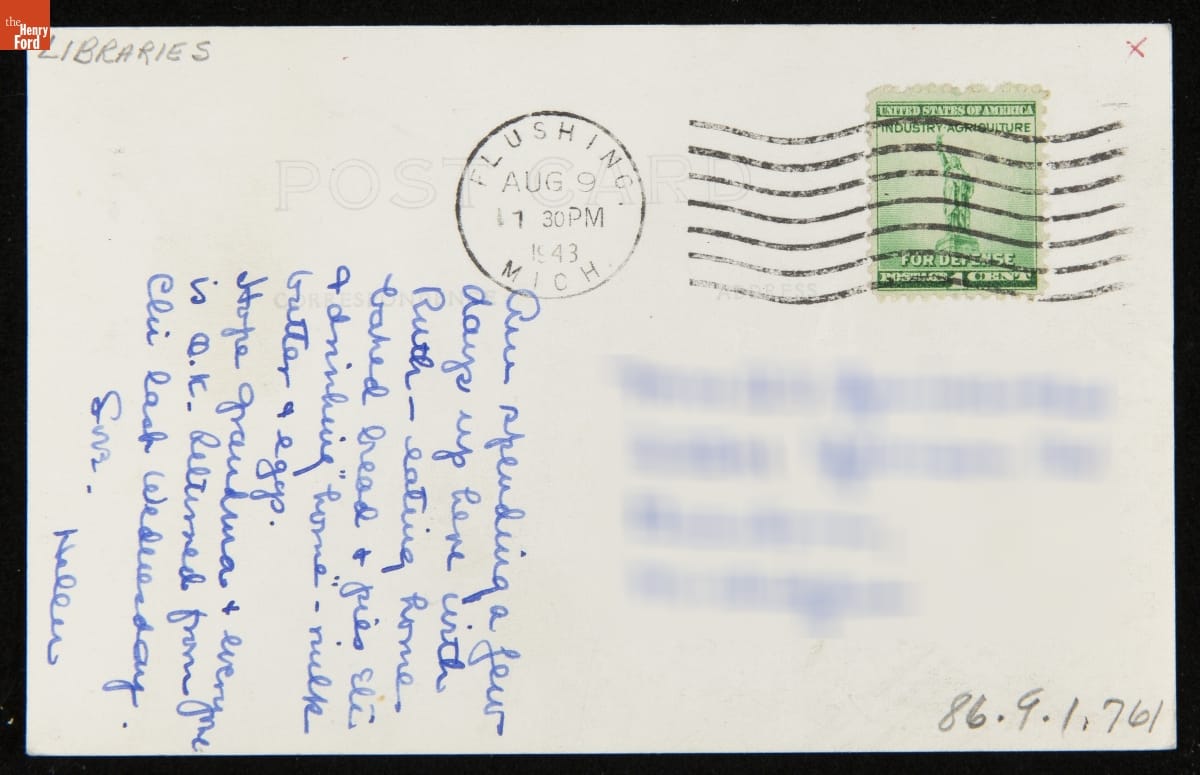 the
Henry
Ford
LIBRARIES
X
POST CARD
FLUSHING,
AUG 9
30 PM
1943
MICH.
UNITED STATES OF AMERICA
INDUSTRY AGRICULTURE
FOR DEFENSE
POSTAGE 1 CENT
CORRESPONDENCE
ADDRESS
Am spending a few
days up here with
Ruth - eating home
baked bread & pies etc
& drinking "home" - milk
butter & eggs.
Hope grandma & everyone
is O.K. Returned from
Chi last Wednesday.
Helen
86.9.1.761